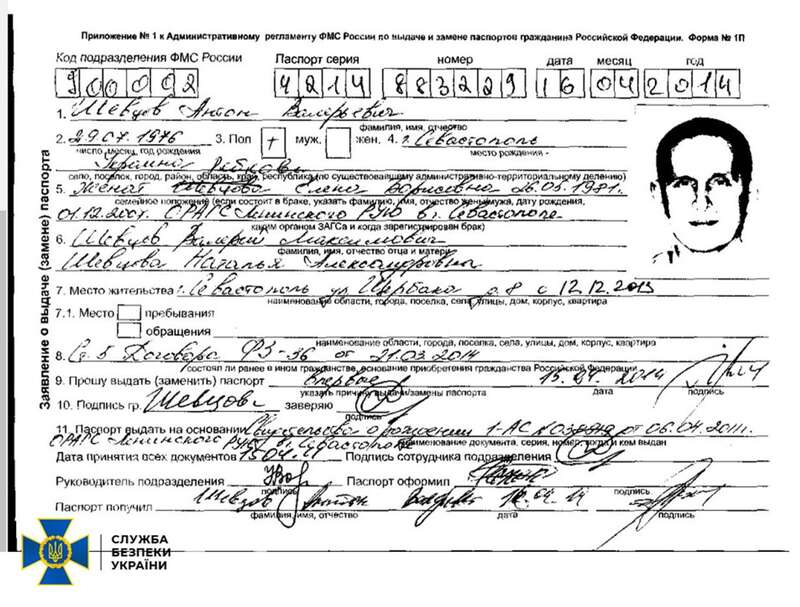 Приложение № 1 к Административному регламенту ФМС России по выдаче и замене паспортов гражданина Российской Федерации. Форма № 1П
Код подразделения ФМС России Паспорт серия номер дата месяц год
900002 4214 883229 16 04 2014
1. Шевцов Антон Валерьевич
фамилия, имя, отчество
2. 29.07.1976 3. Пол + муж. жен. 4. г. Севастополь
число, месяц, год рождения место рождения -
Украина
село, поселок, город, район, область, край, республика (по существовавшему административно-территориальному делению)
5. Женат Шевцова Елена Борисовна 26.05.1981.
семейное положение (если состоит в браке, указать фамилию, имя, отчество жены/мужа, дата рождения,
01.12.2007. ОРАГС Ленинского РУЮ в г. Севастополе
каким органом ЗАГСа и когда зарегистрирован брак)
6. Шевцов Валерий Максимович
фамилия, имя, отчество отца и матери
Шевцова Наталья Александровна
7. Место жительства г. Севастополь ул Щербака д. 8 с 12.12.2013
наименование области, города, поселка, села, улицы, дом, корпус, квартира
7.1. Место пребывания
обращения
наименование области, города, поселка, села, улицы, дом, корпус, квартира
8. Ст. 5 Договора ФЗ-36 от 21.03.2014
состоял ли ранее в ином гражданстве, основание приобретения гражданства Российской Федерации
9. Прошу выдать (заменить) паспорт впервые 2014
указать причину выдачи/замены паспорта дата подпись
10. Подпись гр. Шевцов заверяю
подпись
11. Паспорт выдать на основании Свидетельство о рождении 1-АС от 06.04.2011.
ОРАГС Ленинского РУЮ в г. Севастополе
наименование документа, серия, номер, когда и кем выдан
Дата принятия всех документов Подпись сотрудника подразделения
Руководитель подразделения Паспорт оформил
подпись подпись
Паспорт получил Шевцов Антон 16.04.14
фамилия, имя, отчество дата подпись
Заявление о выдаче (замене) паспорта
СЛУЖБА
БЕЗПЕКИ
УКРАЇНИ